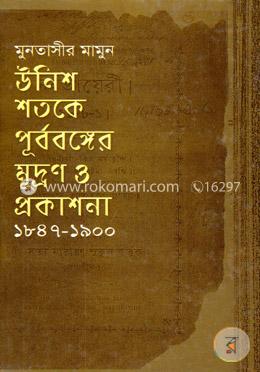 মুনতাসীর মামুন
উনিশ
শতকে
পূর্ববঙ্গের
মুদ্রণ ও
প্রকাশনা
১৮৪৭-১৯০০
www.rokomari.com 16297